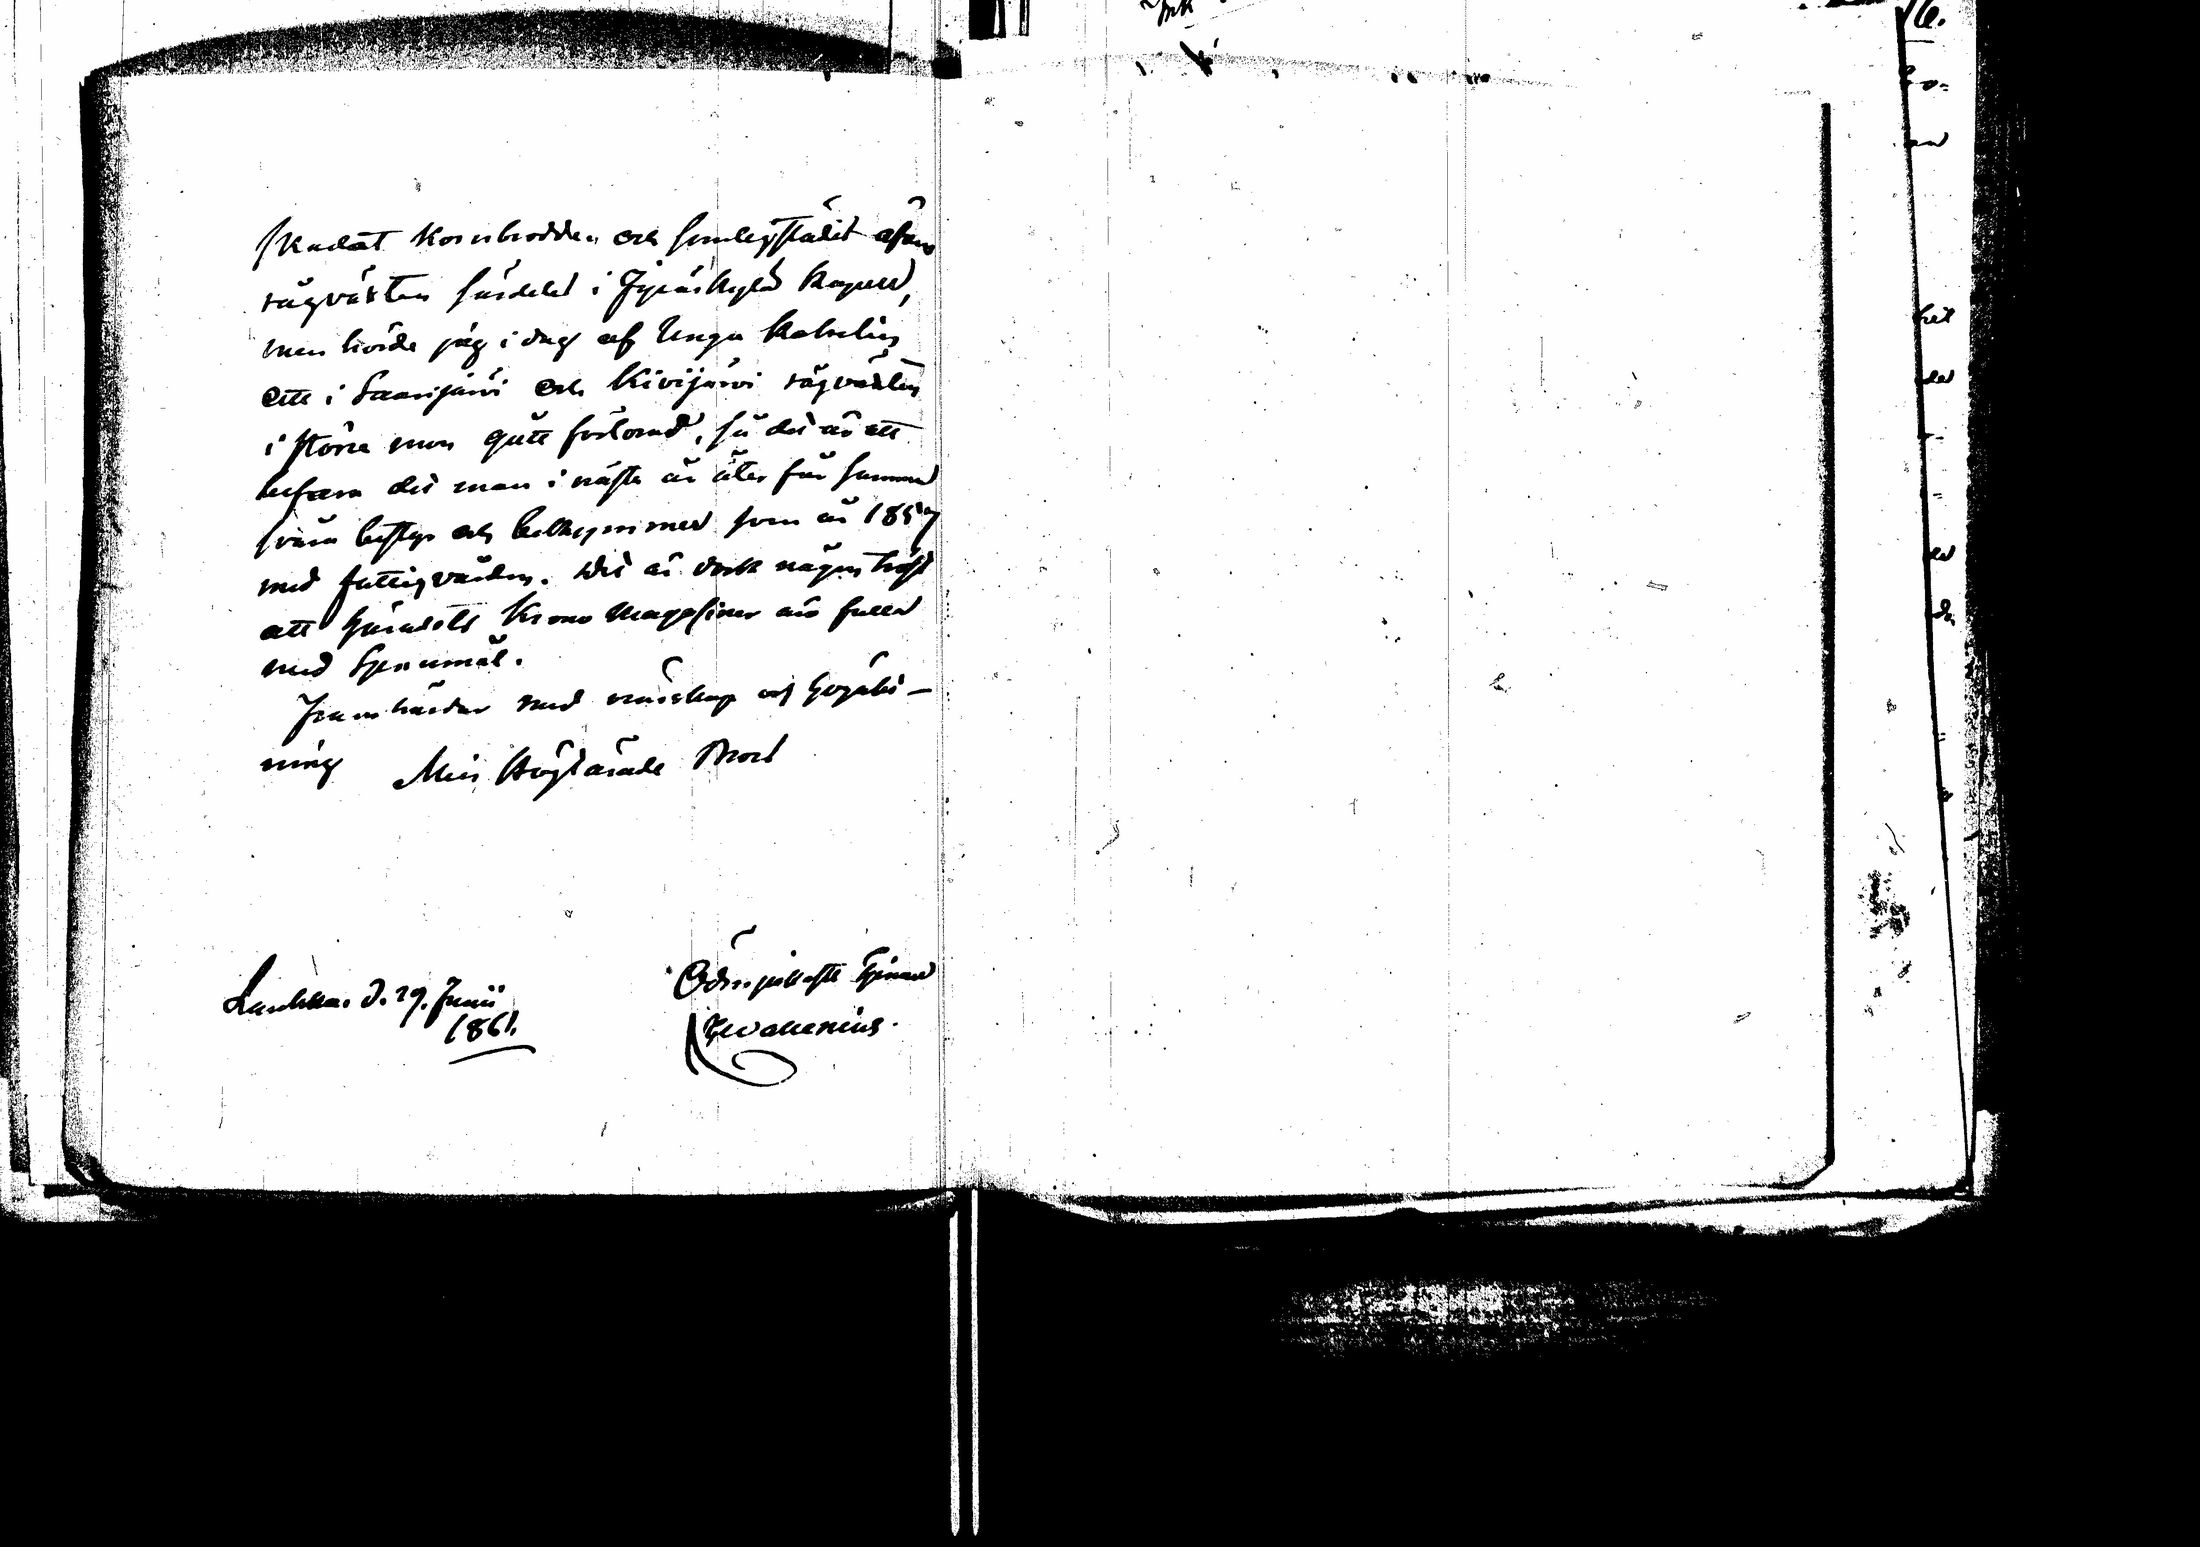 skadat kornbrodden och somligstädes äfven
rågväxten särdeles i Jyväskylä Kapell,
men hörde jag i dag af Unga Kahelin
att i Saarijärvi och Kivijärvi rågväxten
i större mon gått förlorad, så det är att
befara det man i nästa år åter får samma
svåra bestyr och bekymmer som år 1857
med fattigvården. Det är dock någon tröst
att häradets Krono Magasiner äro fulla
med Spanmål.
Framhärdar med vänskap och högakt-
ning Min Högtärade Bror
Ödmjukaste tjenare
Laukkas d. 29. Junii
1861.
Wallenius.
16.